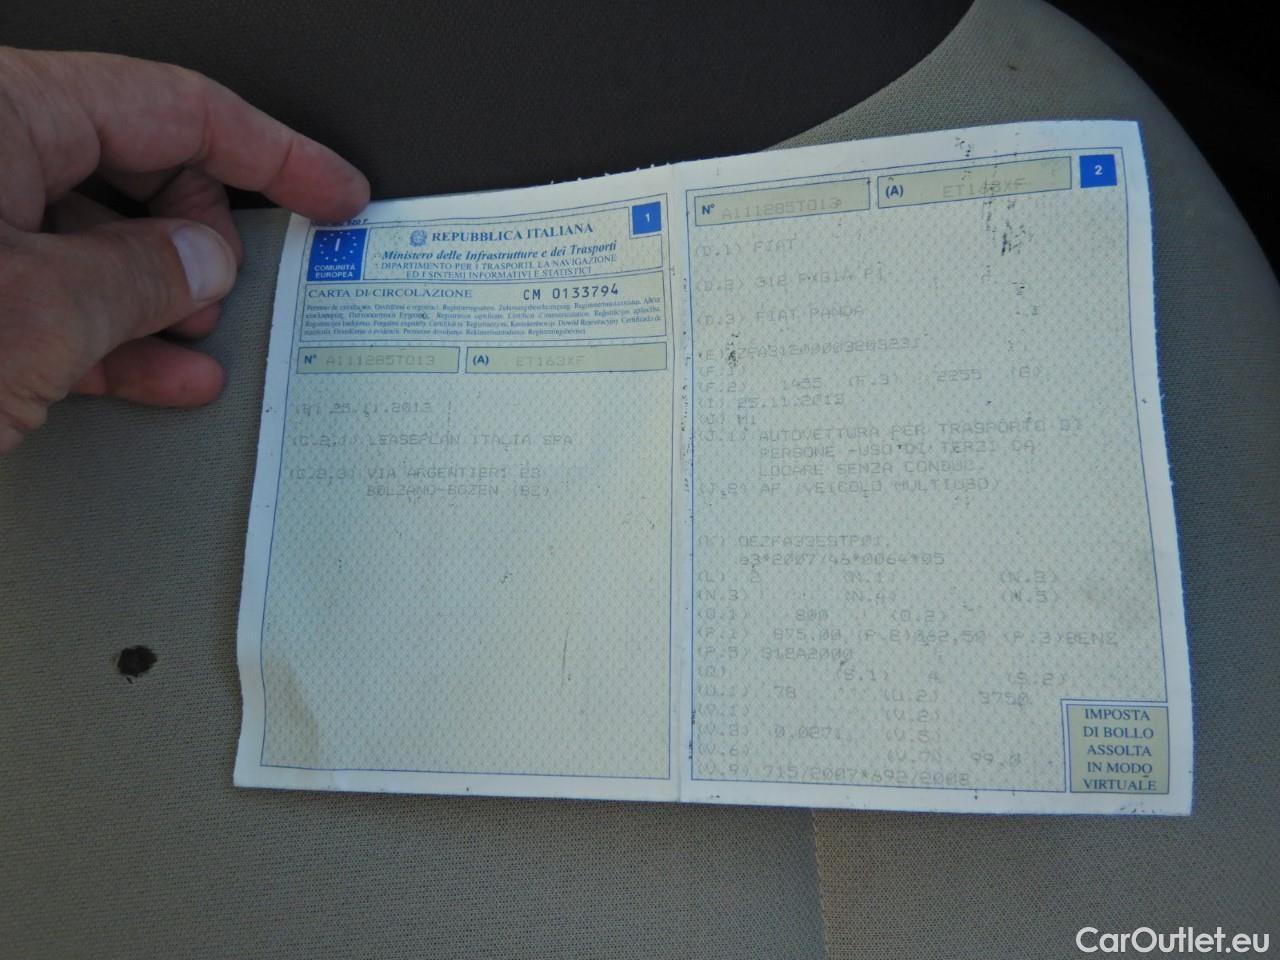 I
COMUNITÀ
EUROPEA
REPUBBLICA ITALIANA
Ministero delle Infrastrutture e dei Trasporti
DIPARTIMENTO PER I TRASPORTI, LA NAVIGAZIONE
ED I SISTEMI INFORMATIVI E STATISTICI
1
CARTA DI CIRCOLAZIONE CM 0133794
N° A111285TO13 (A) ET163XF
(B) 25.11.2013
(C.2.1) LEASEPLAN ITALIA SPA
(C.2.3) VIA ARGENTIERI 23
BOLZANO-BOZEN (BZ)
N° A111285TO13 (A) ET163XF
2
(D.1) FIAT
(D.2) 312 PXG1A
(D.3) FIAT PANDA
(E)
(F.1)
(F.2) 1455 (F.3) 2255 (G)
(I) 25.11.2013
(J) M1
(J.1) AUTOVETTURA PER TRASPORTO DI
PERSONE -USO DI TERZI DA
LOCARE SENZA CONDUC.
(J.2) AF (VEICOLO MULTIUSO)
(K) OEZFA33ESTP01.
e3*2007/46*0064*05
(L) 2 (N.1) (N.2)
(N.3) (N.4) (N.5)
(O.1) 800 (O.2)
(P.1) 875,00 (P.2) 062,50 (P.3) BENZ
(P.5) 312A2000
(Q) (S.1) 4 (S.2)
(U.1) 78 (U.2) 3750
(V.1) (V.2)
(V.3) 0,0271 (V.5)
(V.6) (V.7) 99,0
(V.9) 715/2007*692/2008
IMPOSTA
DI BOLLO
ASSOLTA
IN MODO
VIRTUALE
CarOutlet.eu